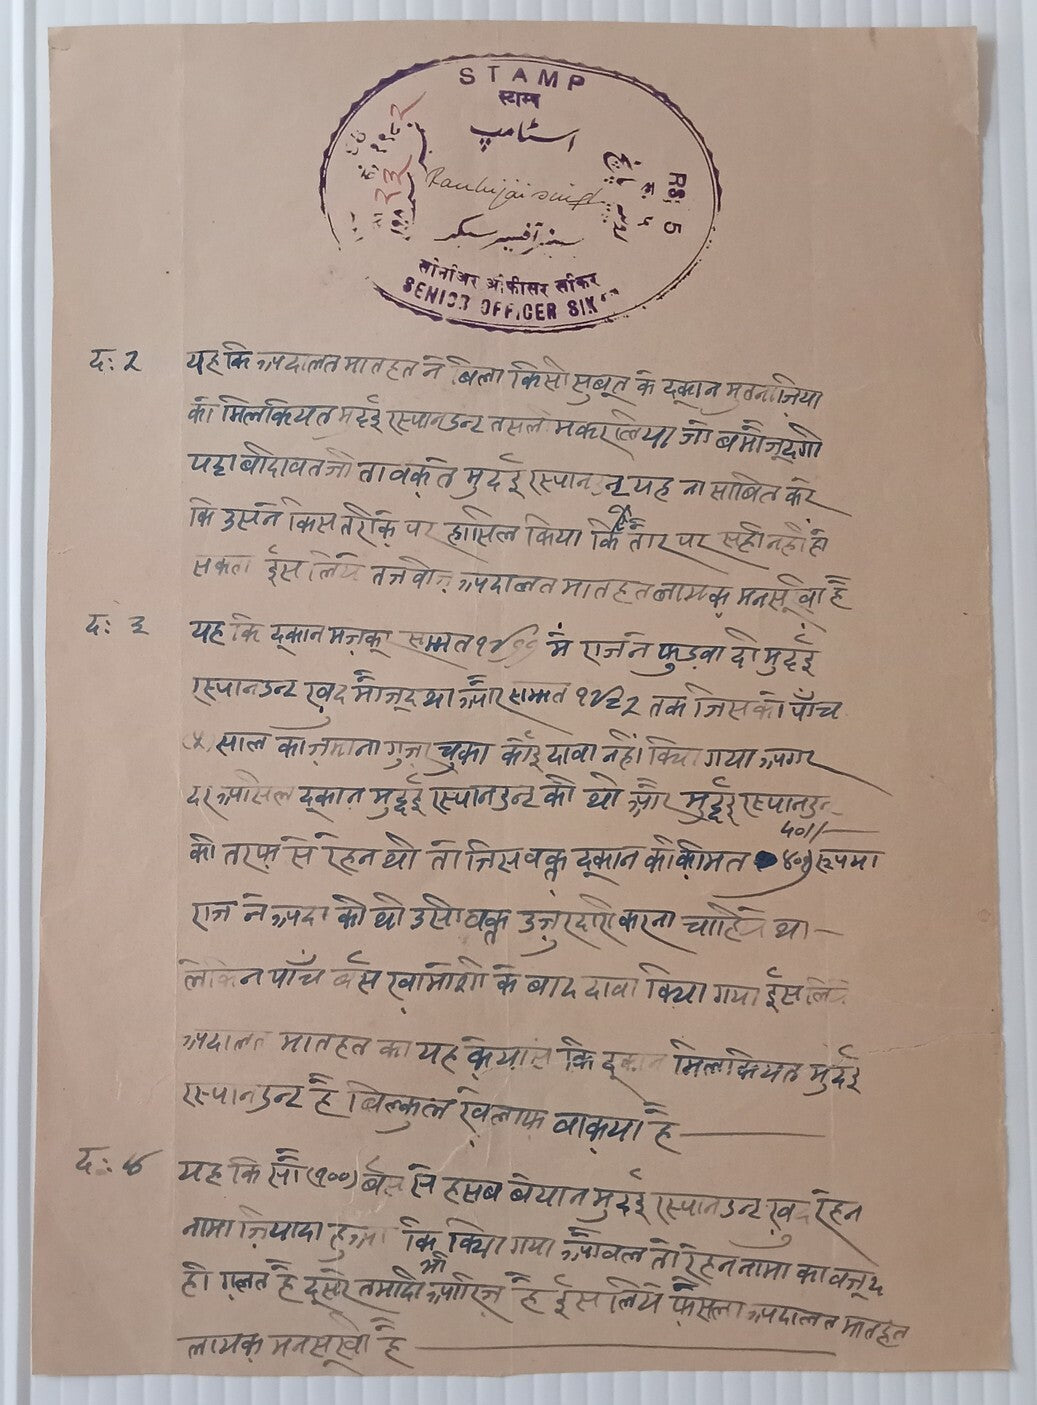 STAMP
स्टाम्प
اسٹامپ
RS 5
سینیر آفیسر سیکر
सीनीअर ओफीसर सीकर
SENIOR OFFICER SIK
द: २ यह कि अदालत मातहत ने बिला किसी सुबूत के दूकान मुतनाज़िया
की मिलकियत मुद्दई रस्पानडन्ट तसलीम करलिया जो बमौजूदगी
पट्टा बीदावत जी तावक़्ते मुद्दई रस्पानडन्ट यह ना साबित करे
कि उसने किस तरीक़े पर हासिल किया किसी तौर पर सही नहीं हो
सकता ईस लिये तजवीज़ अदालत मातहत लायक़ मनसूख़ी है
द: ३ यह कि दूकान मज़कूर सम्मत में राज ने फुड़वा दी मुद्दई
रस्पानडन्ट ख़ुद मौजूद था और सम्मत तक जिसको पाँच
(५) साल का ज़माना गुज़र चुका कोई दावा नहीं किया गया अगर
दर असिल दूकान मुद्दई रस्पानडन्ट की थी और मुद्दई रस्पानडन्ट
की तरफ़ से रेहन थी तो जिस वक़्त दूकान की क़ीमत रूपया
राज ने अदा की थी उसी वक़्त उज़ुरदारी करना चाहिये था —
लेकिन पाँच बर्स ख़ामोशी के बाद दावा किया गया ईस लिये
अदालत मातहत का यह क़ियास कि दूकान मिलकियत मुद्दई
रस्पानडन्ट है बिल्कुल ख़िलाफ़ वाक़या है —
द: ४ यह कि सौ (१००) बर्स से हसब बयान मुद्दई रस्पानडन्ट ख़ुद रेहन
नामा ज़ियादा हुआ कि किया गया अव्वल तो रेहन नामा का वजूद
ही ग़लत है दूसरे तमादी भी आरिज़ है ईस लिये फ़ैसला अदालत मातहत
लायक़ मनसूख़ी है —